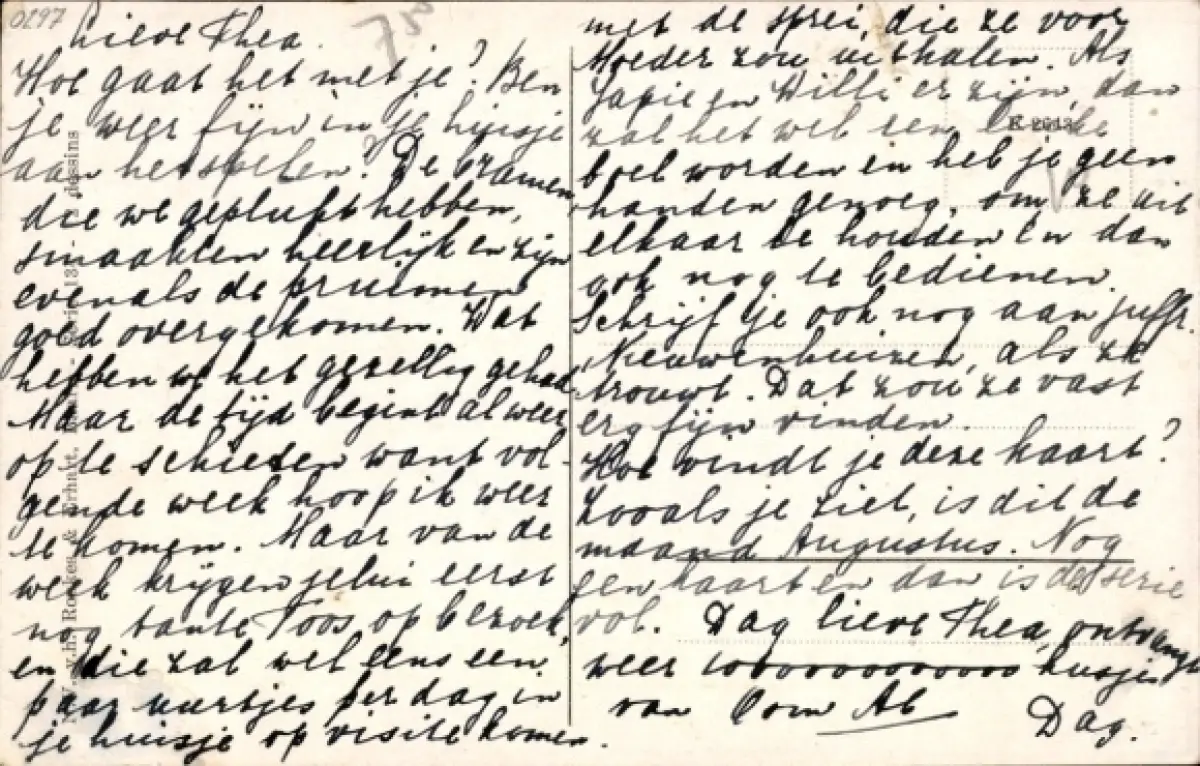 0297
Lieve Thea.
Hoe gaat het met je? Ben
je weer fijn in je huisje
aan het spelen? De bramen,
die we geplukt hebben,
smaakten heerlijk en zijn
evenals de pruimen
goed overgekomen. Wat
hebben we het gezellig gehad
Maar de tijd begint al weer
op te schieten want vol-
gende week hoop ik weer
te komen. Maar van de
week krijgen jelui eerst
nog tante Toos op bezoek,
en die zal wel eens een
paar uurtjes per dag in
je huisje op visite komen.
met de sprei, die ze voor
Moeder zou uithalen. Als
Japie en Willi er zijn, dan
zal het wel een
boel worden en heb je geen
handen genoeg, om ze uit
elkaar te houden en dan
ook nog te bedienen.
Schrijf je ook nog aan juffr.
Nieuwenhuizen, als ze
trouwt. Dat zou ze vast
erg fijn vinden.
Hoe vindt je deze kaart?
Zooals je ziet, is dit de
maand Augustus. Nog
een kaart en dan is de serie
vol. Dag lieve Thea, ontvang
weer 1000000000000 kusjes
van Oom Ab
Dag.
dessins